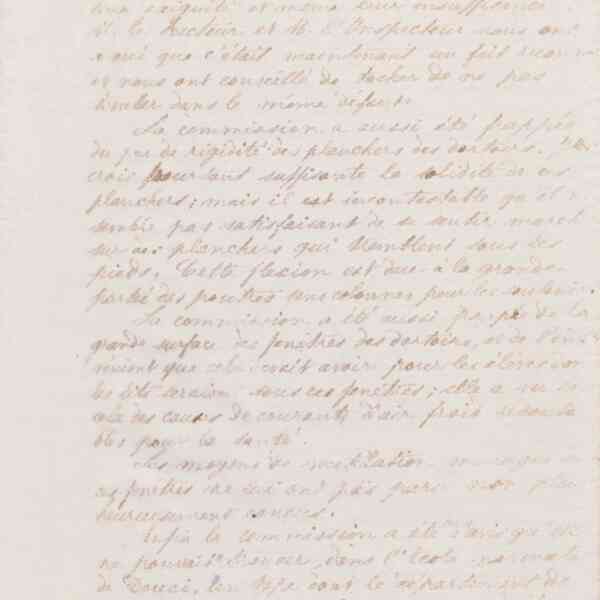 exiguité et même leur insuffisance.
M. le Recteur et M. l'Inspecteur nous ont
que c'était maintenant un fait
et nous ont conseillé de tâcher de ne pas
tomber dans le même défaut.
La commission a aussi été frappée
du peu de rigidité des planchers des dortoirs. Je
crois pourtant suffisante la solidité de ces
planchers; mais il est incontestable qu'il
semble pas satisfaisant de se sentir
sur des planchers qui tremblent sous les
pieds. Cette flexion est due à la grande
portée des poutres sans colonnes pour les soutenir.
La commission a été aussi frappée de la
grande surface des fenêtres des dortoirs, et de
que cela avoir pour les élèves
les lits seraient sous ces fenêtres; elle a vu
cela des causes de courants d'air froid
pour la santé.
Les moyens de ventilation
ces fenêtres ne lui ont pas paru non plus
heureusement conçus.
Enfin la commission a été d'avis qu'elle
ne pouvait trouver, dans l'école normale
de Douai, un type dont le département de